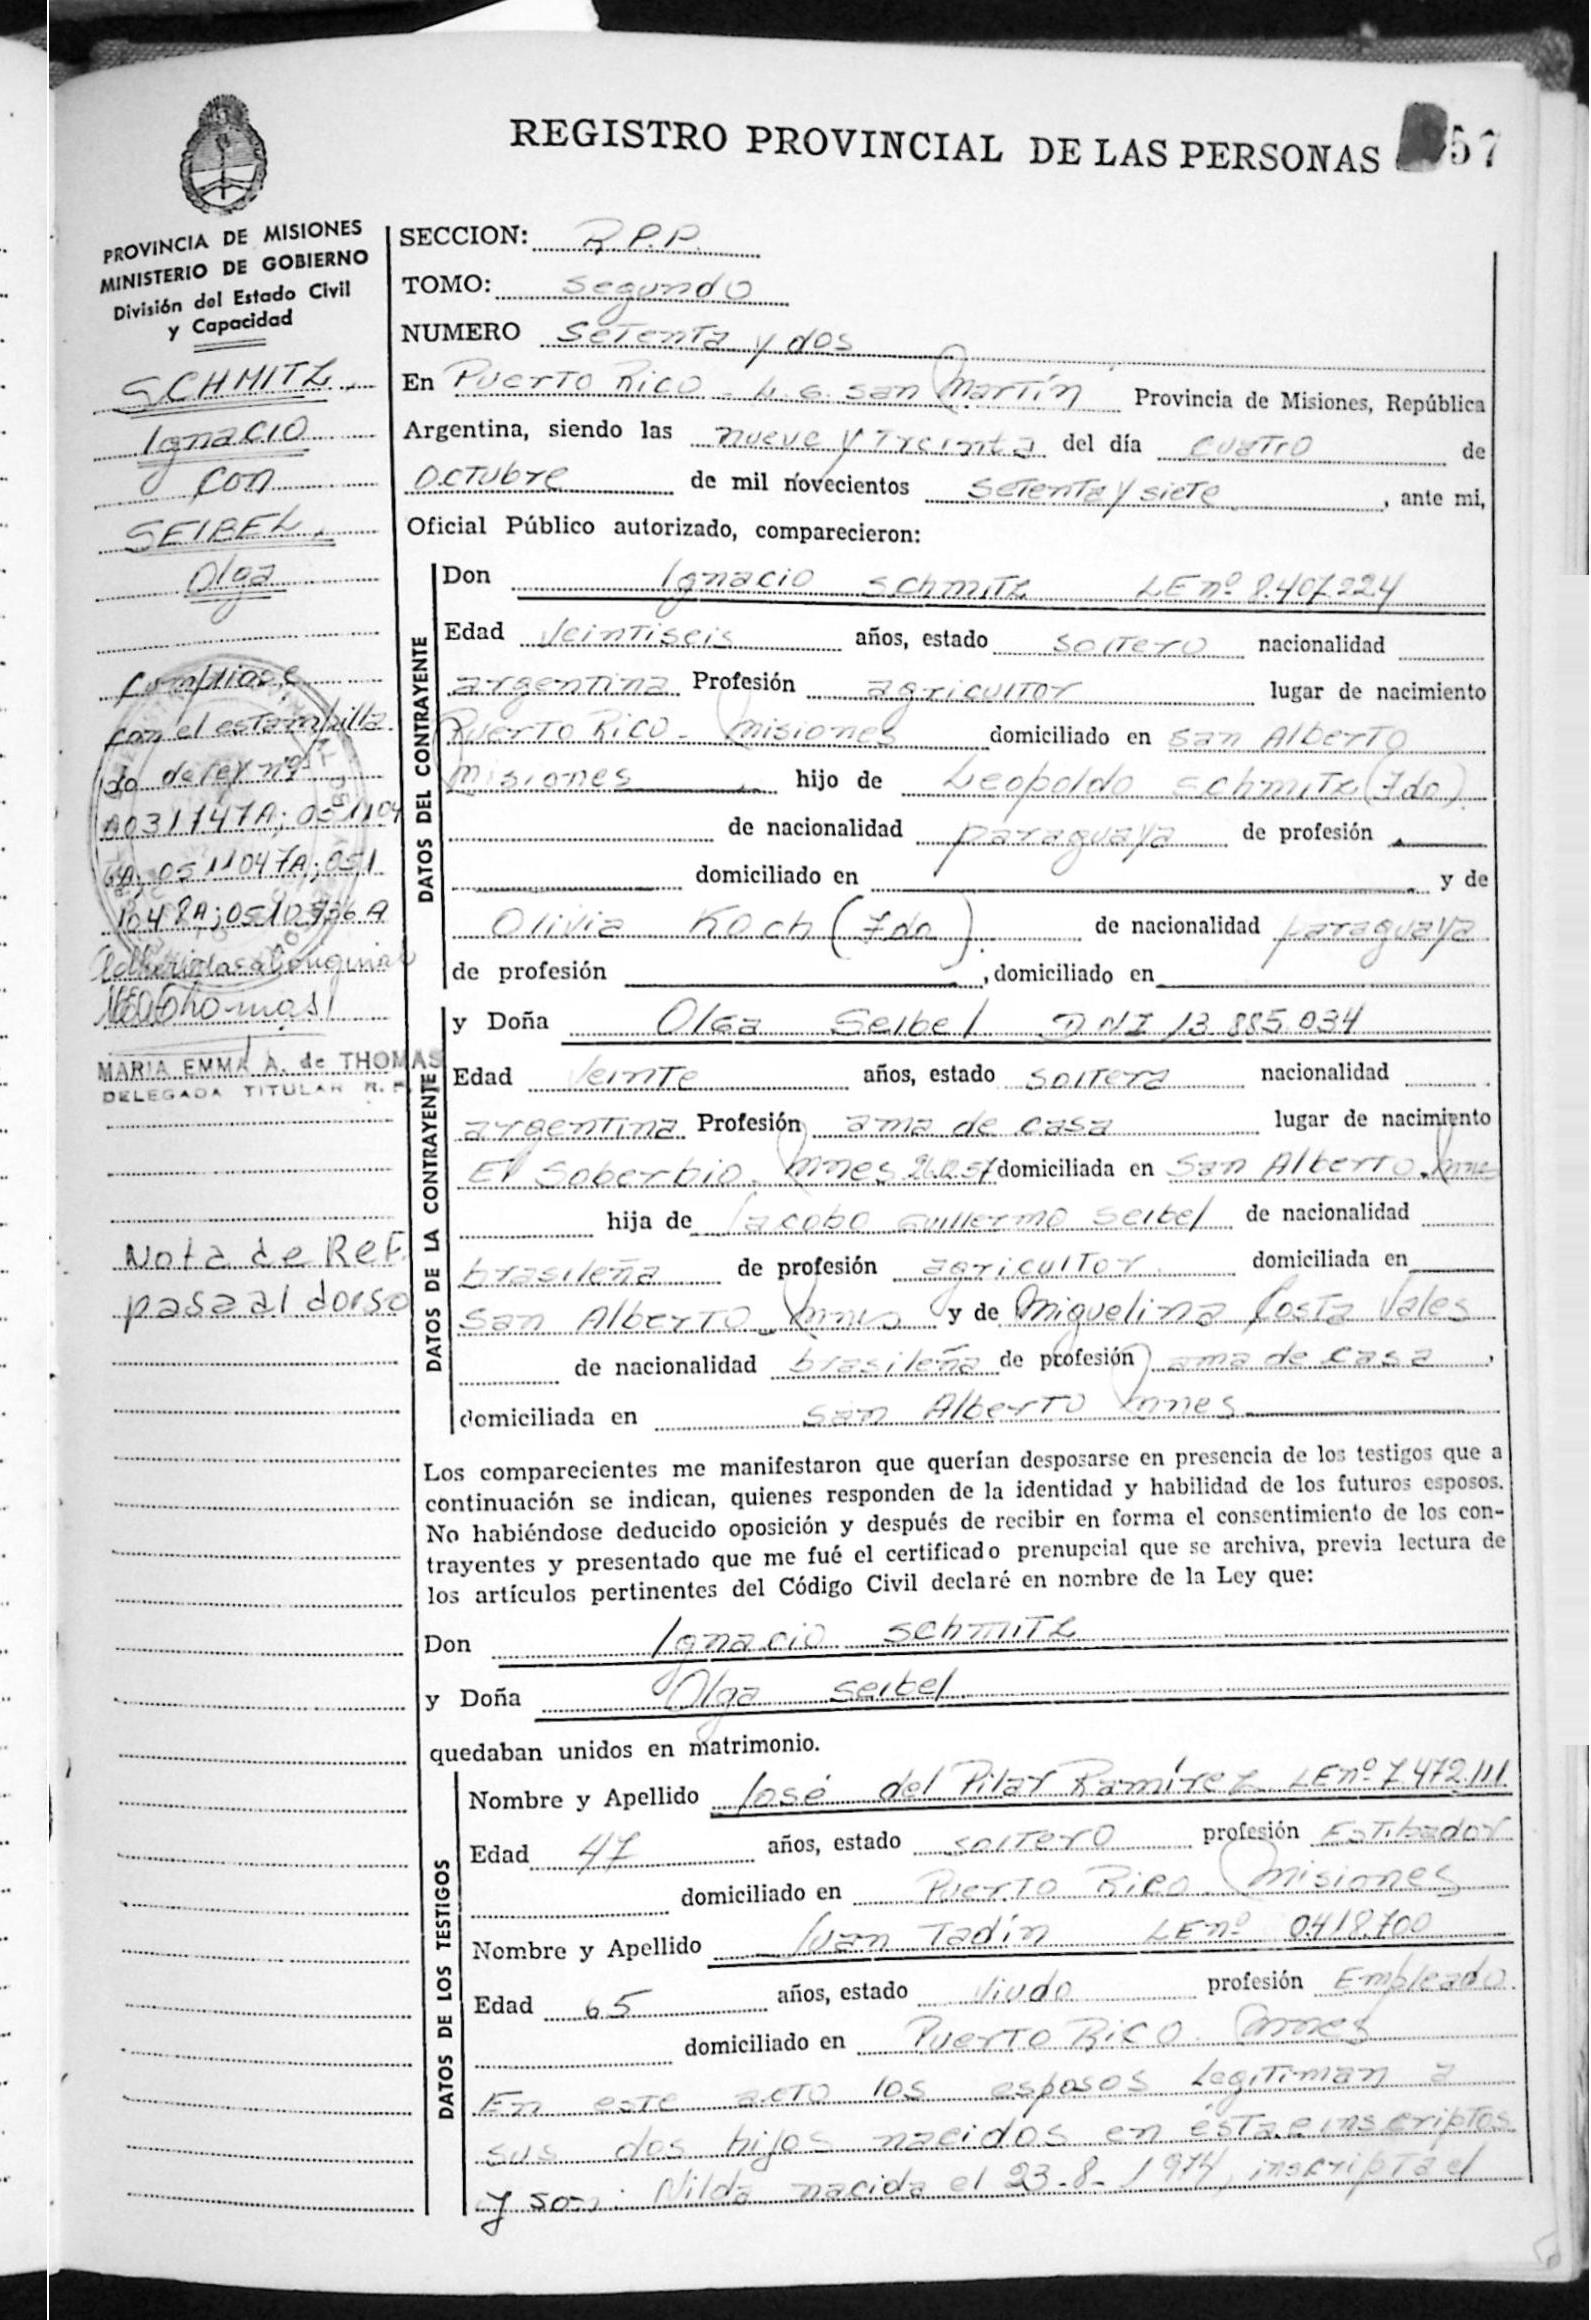 REGISTRO PROVINCIAL DE LAS PERSONAS 57
PROVINCIA DE MISIONES
MINISTERIO DE GOBIERNO
División del Estado Civil
y Capacidad
SCHMITZ,
Ignacio
con
SEIBEL,
Olga
Compliase
con el estampilla
do de ley nº
A031747A; 051104
6A; 0511047A; 051
1048A; 0510736A
Adheridas al original
MARIA EMMA A. de THOMAS
DELEGADA TITULAR R. P.
Nota de Ref.
pasa al dorso
SECCION: R.P.P.
TOMO: Segundo
NUMERO Setenta y dos
En Puerto Rico - L.G. San Martín Provincia de Misiones, República
Argentina, siendo las nueve y treinta del día cuatro de
Octubre de mil novecientos setenta y siete, ante mi,
Oficial Público autorizado, comparecieron:
DATOS DEL CONTRAYENTE
Don Ignacio Schmitz LE nº 8.407.224
Edad Veintiseis años, estado soltero nacionalidad
argentina Profesión agricultor lugar de nacimiento
Puerto Rico - Misiones domiciliado en San Alberto
Misiones hijo de Leopoldo Schmitz (Fdo)
de nacionalidad paraguaya de profesión
domiciliado en y de
Olivia Koch (Fdo). de nacionalidad paraguaya
de profesión , domiciliado en
DATOS DE LA CONTRAYENTE
y Doña Olga Seibel DNI 13.885.034
Edad Veinte años, estado soltera nacionalidad
argentina Profesión ama de casa lugar de nacimiento
El Soberbio. Mnes domiciliada en San Alberto. Mnes
hija de Jacobo Guillermo Seibel de nacionalidad
brasileña de profesión agricultor domiciliada en
San Alberto - Mnes y de Miguelina Costa Vales
de nacionalidad brasileña de profesión ama de casa,
domiciliada en San Alberto Mnes
Los comparecientes me manifestaron que querían desposarse en presencia de los testigos que a
continuación se indican, quienes responden de la identidad y habilidad de los futuros esposos.
No habiéndose deducido oposición y después de recibir en forma el consentimiento de los con-
trayentes y presentado que me fué el certificado prenupcial que se archiva, previa lectura de
los artículos pertinentes del Código Civil declaré en nombre de la Ley que:
Don Ignacio Schmitz
y Doña Olga Seibel
quedaban unidos en matrimonio.
DATOS DE LOS TESTIGOS
Nombre y Apellido José del Pilar Ramírez LE nº 7.472.111
Edad 47 años, estado soltero profesión Estibador
domiciliado en Puerto Rico Misiones
Nombre y Apellido Juan Tadín LE nº 0.418.700
Edad 65 años, estado Viudo profesión Empleado
domiciliado en Puerto Rico. Mnes
En este acto los esposos legitiman a
sus dos hijos nacidos en ésta e inscriptos
y son: Nilda nacida el 23-8-1974, inscripta el